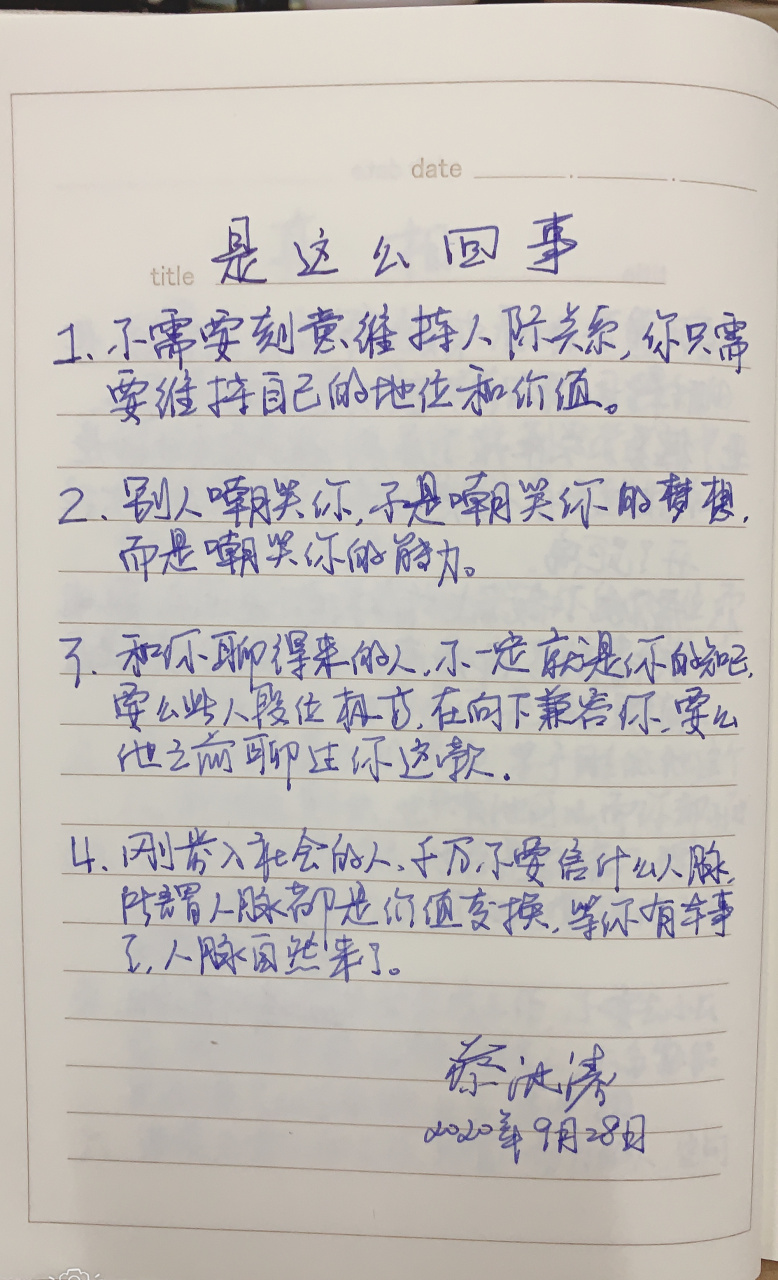 date
title 是这么回事
1、不需要刻意维持人际关系,你只需
要维持自己的地位和价值。
2、别人嘲笑你,不是嘲笑你的梦想,
而是嘲笑你的能力。
3、和你聊得来的人,不一定就是你的知己,
要么此人段位极高,在向下兼容你,要么
他之前聊过你这款.
4、刚步入社会的人、千万不要信什么人脉,
所謂人脉都是价值交换,等你有本事
了,人脉自然来了。
蔡 涛
2020年9月28日